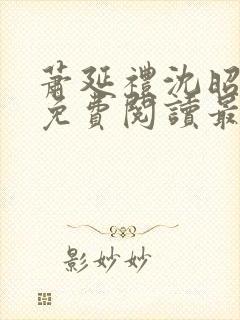 蕭延禮沈昭
免費閱讀最
影妙妙